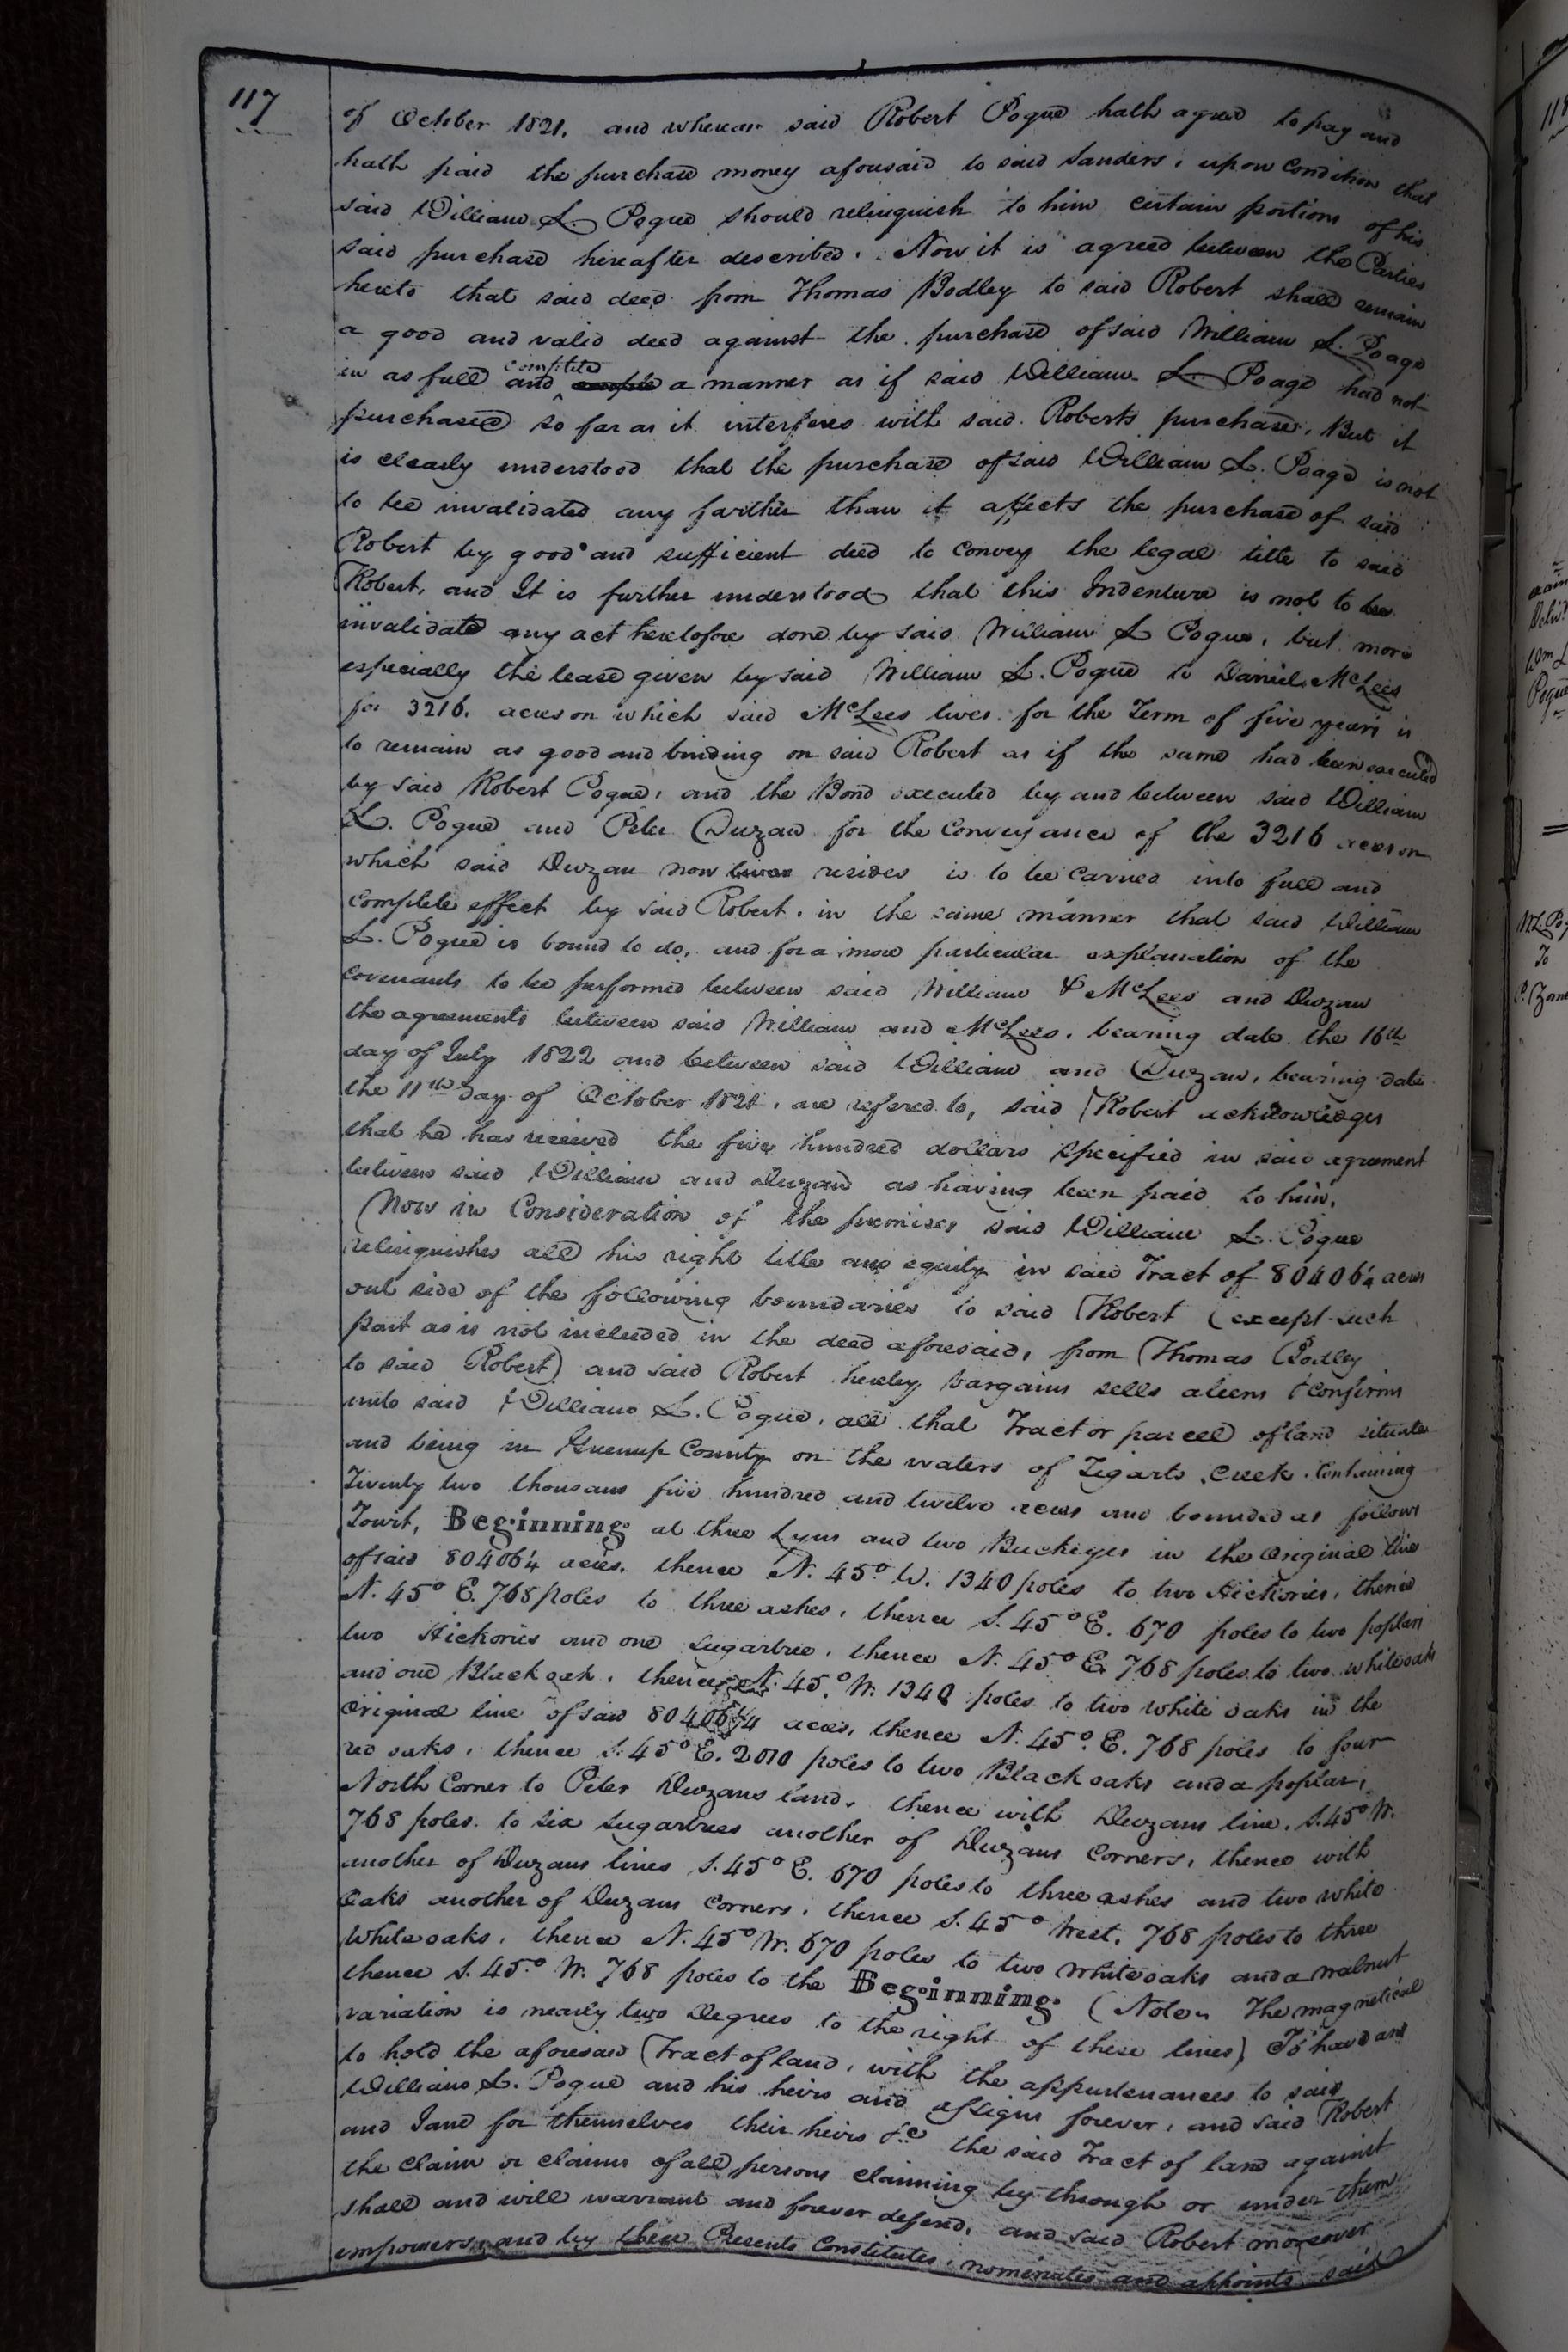 117
of October 1821. and whereas said Robert Pogue hath agreed to pay and
hath paid the purchase money aforesaid to said Sanders, upon condition that
said William L. Pogue should relinquish to him certain portions of his
said purchase hereafter described. Now it is agreed between the Parties
hereto that said deed from Thomas Bodley to said Robert shall remain
a good and valid deed against the purchase of said William L. Poage
in as full and completed a manner as if said William L. Poage had not
purchased so far as it interferes with said Roberts purchase. But it
is clearly understood that the purchase of said William L. Poage is not
to be invalidated any farther than it affects the purchase of said
Robert by good and sufficient deed to convey the legal title to said
Robert, and It is further understood that this Indenture is not to
invalidate any act heretofore done by said William L Pogue, but more
especially the lease given by said William L. Pogue to Daniel McLees
for 3216. acres on which said McLees lives for the Term of five years is
to remain as good and binding on said Robert as if the same had been executed
by said Robert Pogue, and the Bond executed by and between said William
L. Pogue and Peter Duzan for the Conveyance of the 3216 acres on
which said Duzan now resides is to be carried into full and
complete effect by said Robert, in the same manner that said William
L. Pogue is bound to do, and for a more particular explanation of the
covenants to be performed between said William & McLees and Duzan
the agreements between said William and McLees, bearing date the 16th
day of July 1822 and between said William and Duzan, bearing date
the 11th day of October 1821, are refered to, said Robert acknowledges
that he has received the five hundred dollars specified in said agreement
between said William and Duzan as having been paid to him.
Now in Consideration of the premises said William L. Pogue
relinquishes all his right title and equity in said Tract of 80406¼ acres
out side of the following boundaries to said Robert (except such
part as is not included in the deed aforesaid, from Thomas Bodley
to said Robert) and said Robert hereby bargains sells aliens & confirms
unto said William L. Pogue, all that Tract or parcell of land situate
and being in Greenup County on the waters of Tygarts Creek. Containing
Twenty two thousand five hundred and twelve acres and bounded as follows
Towit, Beginning at three Lynns and two Buckeyes in the Original line
of said 80406¼ acres, thence N. 45° W. 1340 poles to two Hickories, thence
N. 45° E. 768 poles to three ashes, thence S. 45° E. 670 poles to two poplars
two Hickories and one sugartree, thence N. 45° E 768 poles to two white oaks
and one Black oak, thence N. 45° W. 1340 poles to two white oaks in the
Original line of said 80406¼ acres, thence N. 45° E. 768 poles to four
red oaks, thence S. 45° E. 2010 poles to two Black oaks and a poplar,
North Corner to Peter Duzans land, thence with Duzans line, S. 45° W.
768 poles to six sugartrees another of Duzans Corners, thence with
another of Duzans lines S. 45° E. 670 poles to three ashes and two white
Oaks another of Duzans Corners, thence S. 45° West, 768 poles to three
White oaks, thence N. 45° W. 670 poles to two White oaks and a walnut
thence S. 45° W. 768 poles to the Beginning (Note. The magnetical
variation is nearly two Degrees to the right of these lines) To have and
to hold the aforesaid Tract of land, with the appurtenances to said
William L. Pogue and his heirs and assigns forever, and said Robert
and Jand for themselves their heirs &c the said Tract of land against
the claim or claims of all persons claiming by through or under them
shall and will warrant and forever defend, and said Robert moreover
empowers, and by these Presents Constitutes, nominates and appoints said
118
Wm L
Pogue
W L. Pog
To